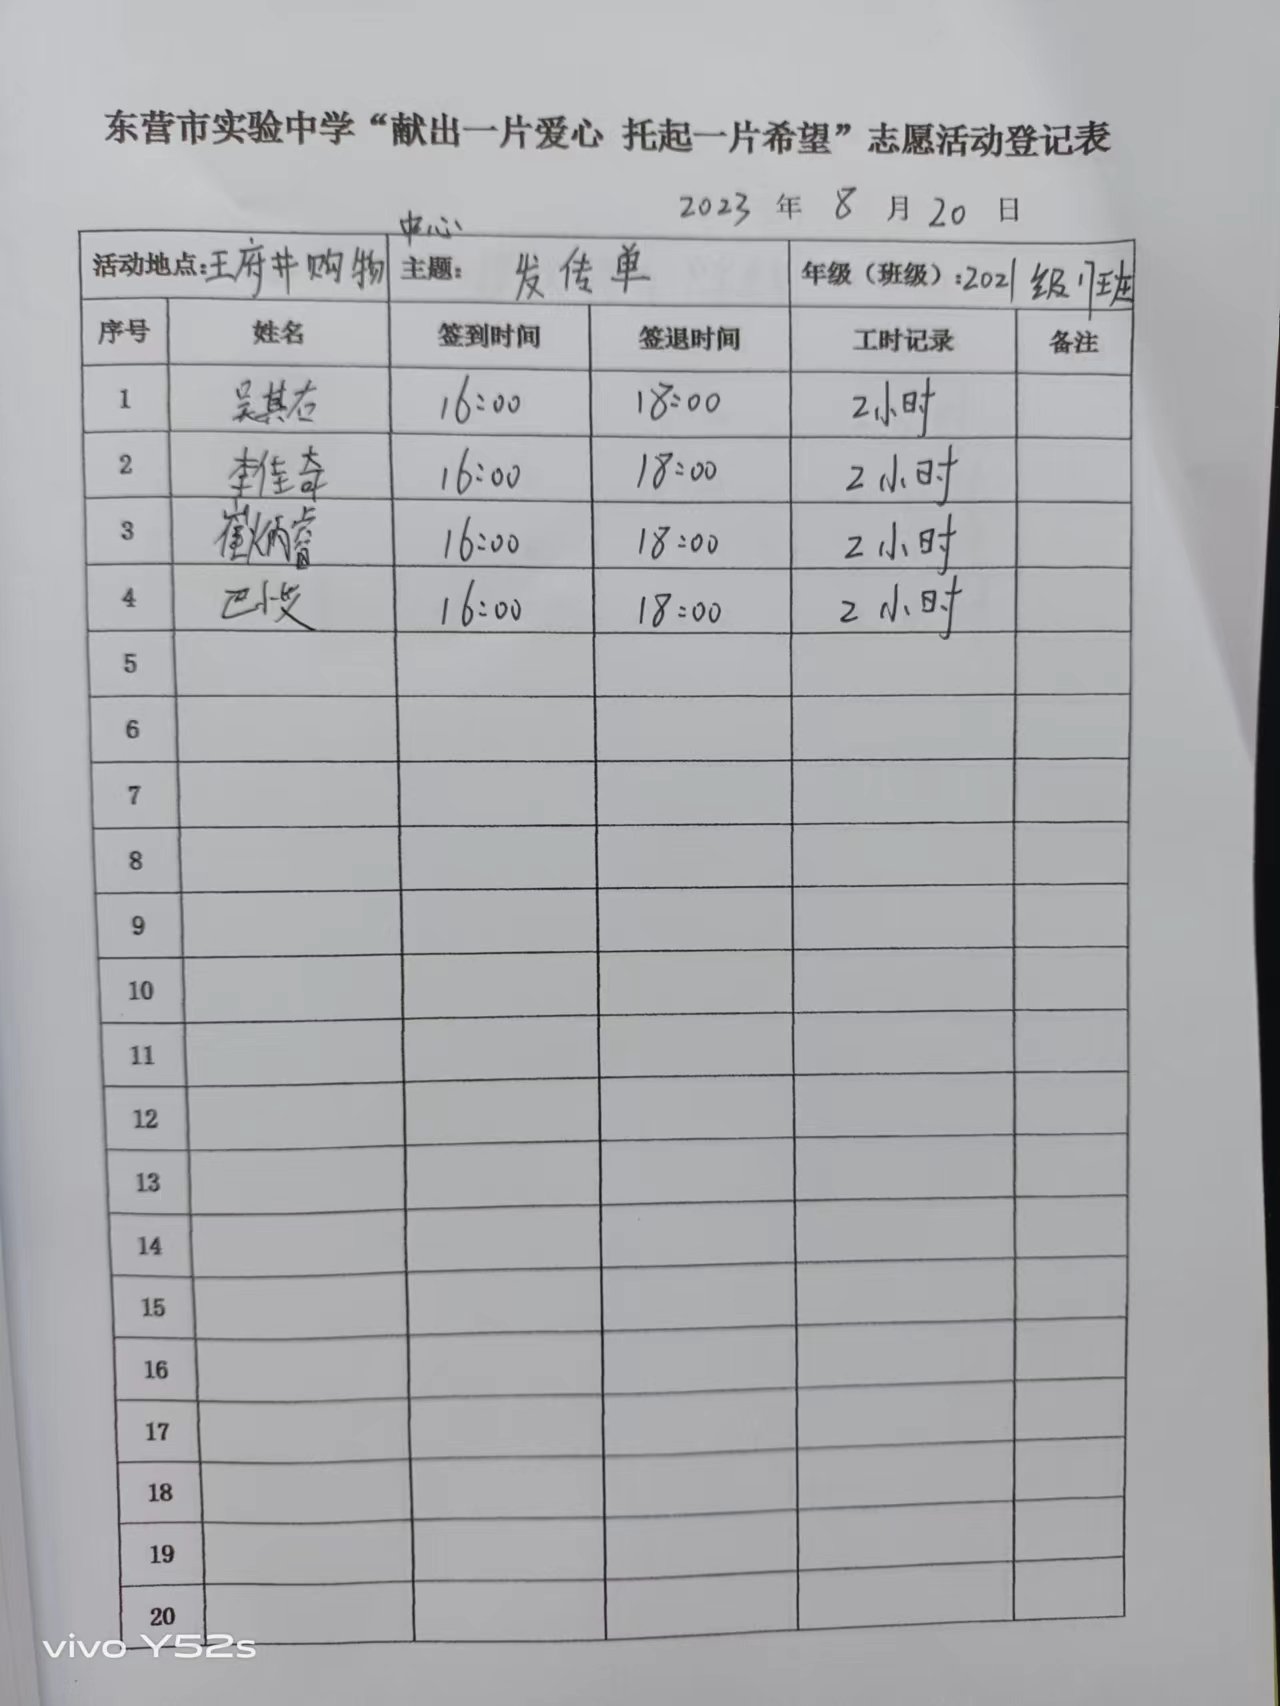 东营市实验中学“献出一片爱心 托起一片希望”志愿活动登记表
2023 年 8 月 20 日
中心
活动地点:王府井购物 主题: 发传单 年级（班级）:2021级17班
序号 姓名 签到时间 签退时间 工时记录 备注
1 吴其右 16:00 18:00 2小时
2 李佳奇 16:00 18:00 2小时
3 崔炳睿 16:00 18:00 2小时
4 巴 16:00 18:00 2小时
5
6
7
8
9
10
11
12
13
14
15
16
17
18
19
20
vivo Y52s